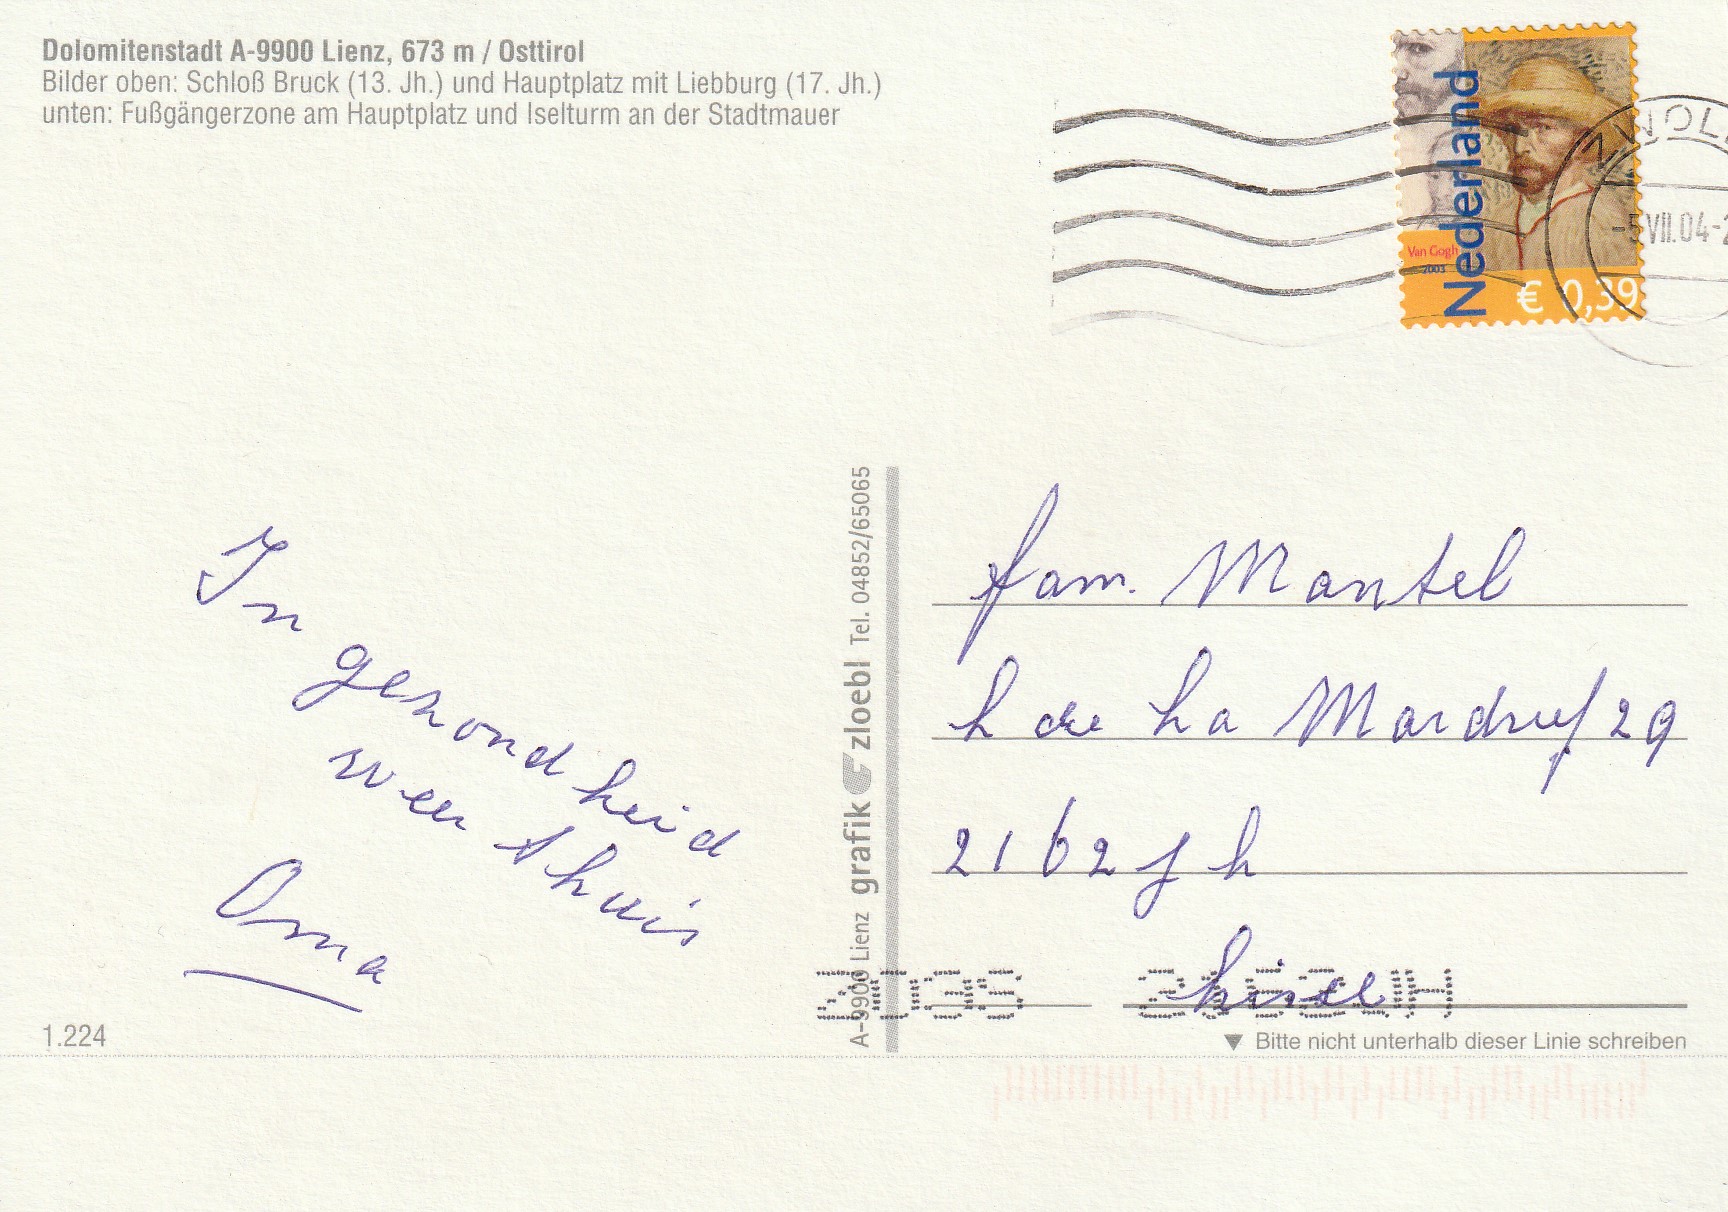 Dolomitenstadt A-9900 Lienz, 673 m / Osttirol
Bilder oben: Schloß Bruck (13. Jh.) und Hauptplatz mit Liebburg (17. Jh.)
unten: Fußgängerzone am Hauptplatz und Iselturm an der Stadtmauer
Nederland
Van Gogh
2003
€ 0,39
ZWOL
-5 VII.04-2
In
gezondheid
weer thuis
Oma
A-9900 Lienz grafik zloebl Tel. 04852/65065
fam. Mantel
29
2162 JH
Lisse
1.224
Bitte nicht unterhalb dieser Linie schreiben